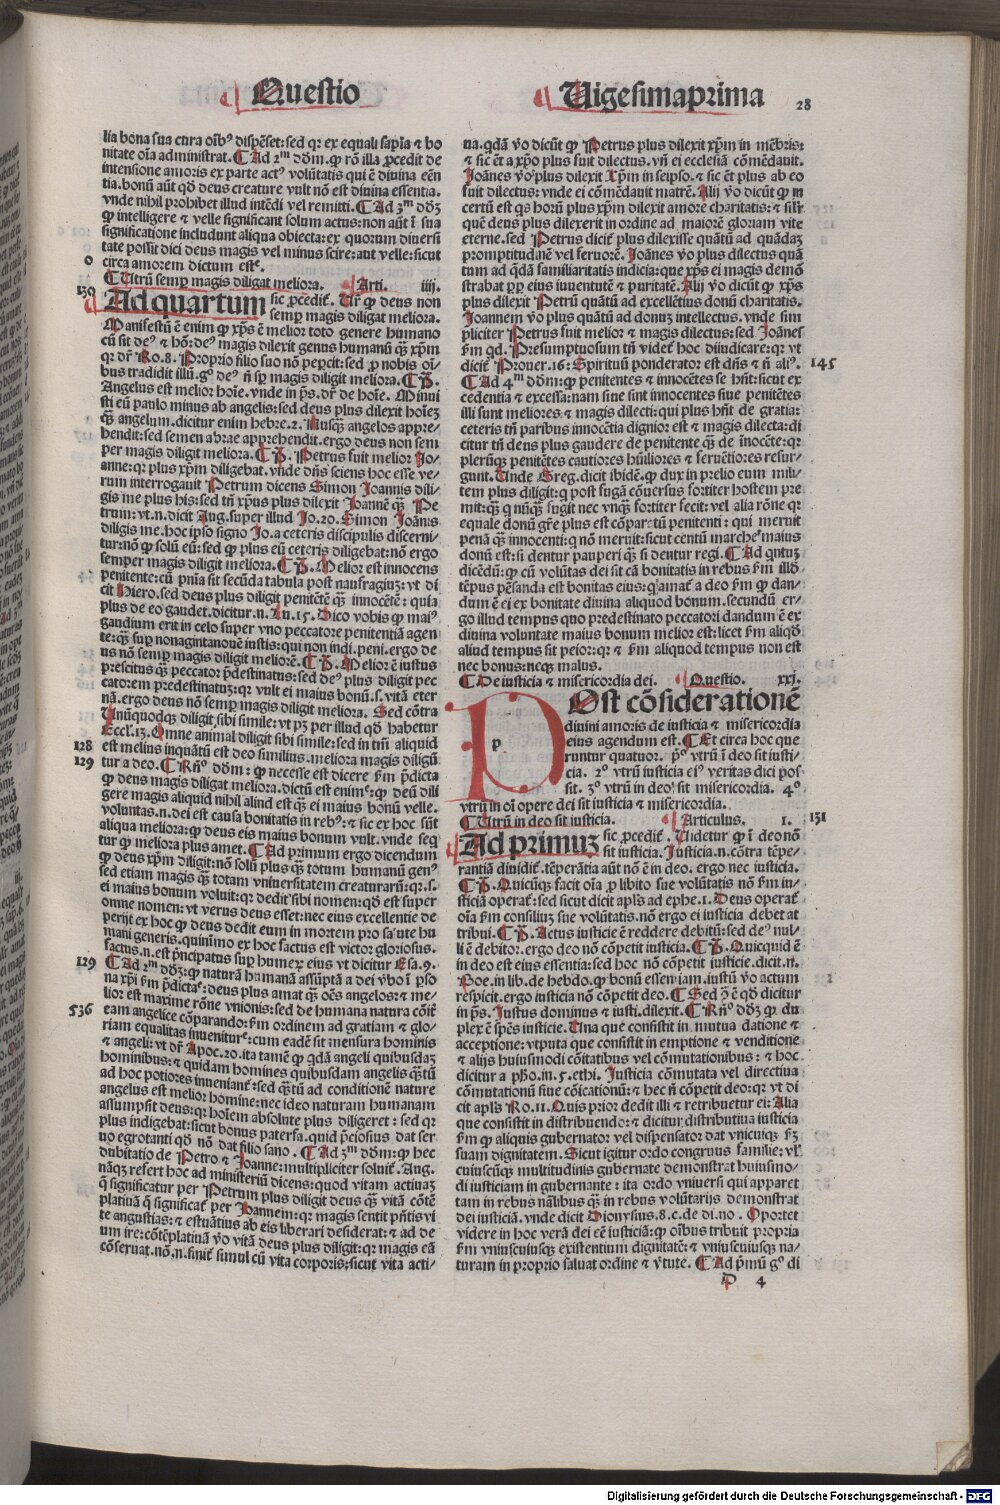 Questio
Uigesimaprima
28
lia bona sua cura oīb⁹ dispēset: sed qꝛ ex equali sapīa ⁊ bo
nitate oīa administrat. ¶ Ad 2ᵐ dōm. ꝙ rō illa ꝓcedit de
intensione amoris ex parte act⁹ volūtatis qui ē diuina eēn
tia. bonū aūt qd̄ deus creature vult nō est diuina essentia.
vnde nihil prohibet illud intēdi vel remitti. ¶ Ad 3ᵐ dōꝫ
ꝙ intelligere ⁊ velle significant solum actus: non aūt ī sua
significatione includunt aliqua obiecta: ex quorum diuersi
tate possit dici deus magis vel minus scire: aut velle: sicut
o
circa amorem dictum estᵉ.
¶ Utrū semꝑ magis diligat meliora. Arti. iiij.
130
Ad quartum sic ꝓcedit᷑. Ur ꝙ deus non
semꝑ magis diligat meliora.
Manifestū ē enim ꝙ xp̄s ē melior toto genere humano
cū sit de⁹ ⁊ hō: de⁹ magis dilexit genus humanū q̄ꝫ xp̄m
qꝛ dr̄ Ro. 8. Proprio filio suo nō peꝑcit: sed ꝓ nobis oī-
bus tradidit illū. gº de⁹ n̄ sꝑ magis diligit meliora. ¶ P̄.
Angelus est melior hoīe. vnde in ps̄. dr̄ de hoīe. Minui
sti eū paulo minus ab angelis: sed deus plus dilexit hoīeꝫ
q̄ꝫ angelum. dicitur enim hebre. 2. Nusq̄ꝫ angelos appre-
hendit: sed semen abrae apprehendit. ergo deus non sem
per magis diligit meliora. ¶ P̄. Petrus fuit melior Jo-
anne: qꝛ plus xp̄m diligebat. vnde dn̄s sciens hoc esse ve-
rum interrogauit Petrum dicens Simon Joannis dili-
gis me plus his: sed tn̄ xp̄us plus dilexit Joannē q̄ꝫ Pe
trum: vt. n. dicit Aug. super illud Jo. 20. Simon Joānis
diligis me. hoc ipso signo Jo. a ceteris discipulis discerni-
tur: nō ꝙ solū eū: sed ꝙ plus eū ceteris diligebat: nō ergo
semper magis diligit meliora. ¶ P̄. Melior est innocens
penitente: cū pn̄ia sit secūda tabula post naufragiuꝫ: vt di
cit Hiero. sed deus plus diligit penitētē q̄ꝫ innocētē: quia
plus de eo gaudet. dicitur. n. Lu. 15. Dico vobis ꝙ mai⁹
gaudium erit in celo super vno peccatore penitentiā agen
te: q̄ꝫ suꝑ nonagintanouē iustis: qui non indi. peni. ergo de
us nō semꝑ magis diligit meliorē. ¶ P̄. Melior ē iustus
prescitus q̄ꝫ peccator p̄destinatus: sed de⁹ plus diligit pec
catorem predestinatuꝫ: qꝛ vult ei maius bonū. s. vitā eter
nā. ergo deus nō semꝑ magis diligit meliora. Sed cōtra
Unūquodqꝫ diligit sibi simile: vt pꝫ per illud qd̄ habetur
Eccl. 13. Omne animal diligit sibi simile: sed in tm̄ aliquid
128
est melius inquātū est deo similius. meliora magis diligū
129
tur a deo. ¶ Rn̄º dōm: ꝙ necesse est dicere ẜm p̄dicta
ꝙ deus magis diligat meliora. dictū est enimᶜ: ꝙ deū dili
gere magis aliquid nihil aliud est q̄ꝫ ei maius bonū velle.
voluntas. n. dei est causa bonitatis in reb⁹: ⁊ sic ex hoc sūt
aliqua meliora: ꝙ deus eis maius bonum vult. vnde seq̄
tur ꝙ meliora plus amet. ¶ Ad primum ergo dicendum
ꝙ deus xp̄m diligit: nō solū plus q̄ꝫ totum humanū gen⁹
sed etiam magis q̄ꝫ totam vniuersitatem creaturarū: qꝛ. s.
ei maius bonum voluit: qꝛ dedit sibi nomen: qd̄ est super
omne nomen: vt verus deus esset: nec eius excellentie de
perijt ex hoc ꝙ deus dedit eum in mortem pro salute hu
mani generis. quinīmo ex hoc factus est victor gloriosus.
factus. n. est p̄ncipatus suꝑ humeꝝ eius vt dicitur Esa. 9.
129
¶ Ad 2ᵐ dōꝫ: ꝙ naturā humanā assūptā a dei vbo ī ꝑso
na xp̄i ẜm p̄dictaᶜ: deus plus amat q̄ꝫ oēs angelos: ⁊ me-
lior est maxime rōne vnionis: sed de humana natura cōit̄
536
eam angelice cōparando: ẜm ordinem ad gratiam ⁊ glo-
riam equalitas inuenitur̄ᶜ: cum eadē sit mensura hominis
⁊ angeli: vt dr̄ Apoc. 20. ita tamē ꝙ qdā angeli quibusdaꝫ
hominibus: ⁊ quidam homines quibusdam angelis q̄tū
ad hoc potiores inueniant᷑: sed q̄tū ad conditionē nature
angelus est melior homine: nec ideo naturam humanam
assumpsit deus: qꝛ hoīem absolute plus diligeret: sed qꝛ
plus indigebat: sicut bonus paterfa. quid p̄ciosius dat ser
uo egrotanti qd̄ nō dat filio sano. ¶ Ad 3ᵐ dōm: ꝙ hec
dubitatio de Petro ⁊ Joanne: multipliciter soluit᷑. Aug.
nāqꝫ refert hoc ad ministeriū dicens: quod vitam actiuaꝫ
q̄ significatur per Petrum plus diligit deus q̄ꝫ vitā cōtē
platiuā q̄ significat᷑ per Joannem: qꝛ magis sentit pn̄tis vi
te angustias: ⁊ estuātius ab eis liberari desiderat: ⁊ ad de
um ire: cōtēplatiuā v̄o vitā deus plus diligit: qꝛ magis eā
cōseruat. nō. n. finit᷑ simul cū vita corporis: sicut vita acti-
ua. qdā v̄o dicūt ꝙ Petrus plus dilexit xp̄m in mēbris:
⁊ sic ēt a xp̄o plus fuit dilectus. vn̄ ei ecclesiā cōmēdauit.
Joānes v̄o plus dilexit Xp̄m in seipso. ⁊ sic ēt plus ab eo
fuit dilectus: vnde ei cōmēdauit matrē. Alij v̄o dicūt ꝙ in
certū est q̄s horū plus xp̄m dilexit amore charitatis: ⁊ sil̄r
quē deus plus dilexerit in ordine ad maiorē gloriam vite
eterne. sed Petrus dicit᷑ plus dilexisse quātū ad quādaꝫ
promptitudinē vel feruorē. Joānes v̄o plus dilectus quā
tum ad q̄dā familiaritatis indicia: que xp̄s ei magis demō
strabat ꝓꝑ eius iuuentutē ⁊ puritatē. Alij v̄o dicūt ꝙ xp̄s
plus dilexit Petrū quātū ad excellētius donū charitatis.
Joannem v̄o plus quātū ad donuꝫ intellectus. vnde sim
pliciter Petrus fuit melior ⁊ magis dilectus: sed Joānes
ẜm qd. Presumptuosum tn̄ videt᷑ hoc diiudicare: qꝛ vt
dicit᷑ Prouer. 16: Spirituū ponderator est dn̄s ⁊ n̄ ali⁹.
145
¶ Ad 4ᵐ dōm: ꝙ penitentes ⁊ innocētes se hn̄t: sicut ex
cedentia ⁊ excessa: nam siue sint innocentes siue penitētes
illi sunt meliores ⁊ magis dilecti: qui plus hn̄t de gratia:
ceteris tn̄ paribus innocētia dignior est ⁊ magis dilecta: di
citur tn̄ deus plus gaudere de penitente q̄ꝫ de īnocēte: qꝛ
plerūqꝫ penitētes cautiores hūiliores ⁊ feruētiores resur-
gunt. Unde Greg. dicit ibidē. ꝙ dux in prelio eum mili-
tem plus diligit: q̄ post fugā cōuersus fortiter hostem pre
mit: q̄ꝫ q̄ nūq̄ꝫ fugit nec vnq̄ꝫ fortiter fecit: vel alia rōne qꝛ
equale donū grē plus est cōparatū penitenti: qui meruit
penā q̄ꝫ innocenti: q̄ nō meruit: sicut centū marche maius
donū est: si dentur pauperi q̄ꝫ si dentur regi. ¶ Ad qntuꝫ
dicēdū: ꝙ cū volūtas dei sit cā bonitatis in rebus ẜm illd̄
tēpus pēsanda est bonitas eius: q̄ amat᷑ a deo ẜm ꝙ dan-
dum ē ei ex bonitate diuina aliquod bonum. secundū er-
go illud tempus quo predestinato peccatori dandum ē ex
diuina voluntate maius bonum melior est: licet ẜm aliqd̄
aliud tempus sit peior: qꝛ ⁊ ẜm aliquod tempus non est
nec bonus: neqꝫ malus.
¶ De iusticia ⁊ misericordia dei. Questio. xxj.
p
Post cōsiderationē
diuini amoris de iusticia ⁊ misericordia
eius agendum est. ¶ Et circa hoc que
runtur quatuor. pº vtrū ī deo sit iusti-
cia. 2º vtrū iusticia ei⁹ veritas dici pos
sit. 3º vtrū in deo sit misericordia. 4º
vtrū in oī opere dei sit iusticia ⁊ misericordia.
¶ Utrū in deo sit iusticia. Articulus. 1.
131
Ad primuꝫ sic ꝓcedit᷑. Uidetur ꝙ ī deo nō
sit iusticia. Justicia. n. cōtra tēpe-
rantiā diuidit᷑. tēperātia aūt nō ē in deo. ergo nec iusticia.
¶ P̄. Quicūqꝫ facit oīa ꝓ libito sue volūtatis nō ẜm iu-
sticiā operat᷑: sed sicut dicit apl̄s ad ephe. 1. Deus operat᷑
oīa ẜm consiliuꝫ sue volūtatis. nō ergo ei iusticia debet at
tribui. ¶ P̄. Actus iusticie ē reddere debitū: sed de⁹ nul-
li ē debitor. ergo deo nō cōpetit iusticia. ¶ P̄. Quicquid ē
in deo est eius essentia: sed hoc nō cōpetit iusticie. dicit. n.
Boe. in lib. de hebdo. ꝙ bonū essentiam. iustū v̄o actum
respicit. ergo iusticia nō cōpetit deo. ¶ Sed ꝯ̄ ē qd̄ dicitur
in ps̄. Justus dominus ⁊ iusti. dilexit. ¶ Rn̄º dōꝫ ꝙ du
plex ē spēs iusticie. Una que consistit in mutua datione ⁊
acceptione: vtputa que consistit in emptione ⁊ venditione
⁊ alijs huiusmodi cōitatibus vel cōmutationibus: ⁊ hoc
dicitur a pho. in. 5. ethi. Justicia cōmutata vel directiua
cōmutationū siue cōicationū: ⁊ hec n̄ cōpetit deo: qꝛ vt di
cit apl̄s Ro. 11. Quis prior dedit illi ⁊ retribuetur ei: Alia
que consistit in distribuendo: ⁊ dicitur distributiua iusticia
ẜm ꝙ aliquis gubernator vel dispensator dat vnicuiqꝫ ẜꝫ
suam dignitatem. Sicut igitur ordo congruus familie: vl̄
cuiuscūqꝫ multitudinis gubernate demonstrat huiusmo-
di iusticiam in gubernante: ita ordo vniuersi qui apparet
tam in rebus nālibus q̄ꝫ in rebus volūtarijs demonstrat
dei iusticiā. vnde dicit Dionysius. 8. c. de di. no. Oportet
videre in hoc verā dei eē iusticiā: ꝙ oībus tribuit propria
ẜm vniuscuiusqꝫ existentium dignitatē: ⁊ vniuscuiusqꝫ na-
turam in proprio saluat ordine ⁊ v̄tute. ¶ Ad p̄mū gº di
D 4
Digitalisierung gefördert durch die Deutsche Forschungsgemeinschaft - DFG